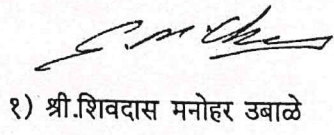 १) श्री.शिवदास मनोहर उबाळे